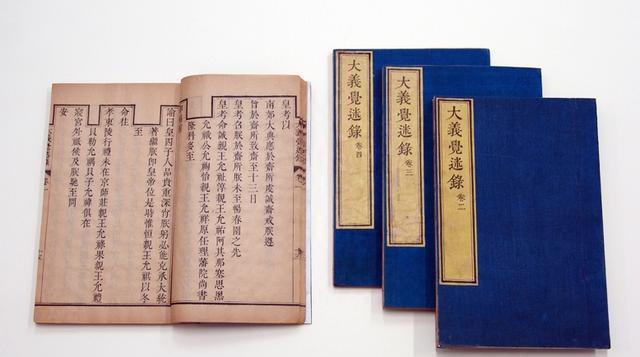 皇考以
南郊大典應於齋所虔誠齋戒朕遵
曾於齋所致齋至十三日
皇考召朕於齋所朕未至暢春園之先
皇考命誠親王允祉淳親王允祐阿其那塞思黑
公允祹怡親王允祥原任理藩院尚書
隆科多至
諭曰皇四子人品貴重深肖朕躬必能克承大統
著繼朕即皇帝位是時惟恒親王允祺以冬
至
命往
孝東陵行禮未在京師莊親王允祿果親王允禮
貝勒允禑貝子允禕俱在
寢宮外祗候及朕馳至問
安
大義覺迷錄 卷四
大義覺迷錄 卷三
大義覺迷錄 卷二